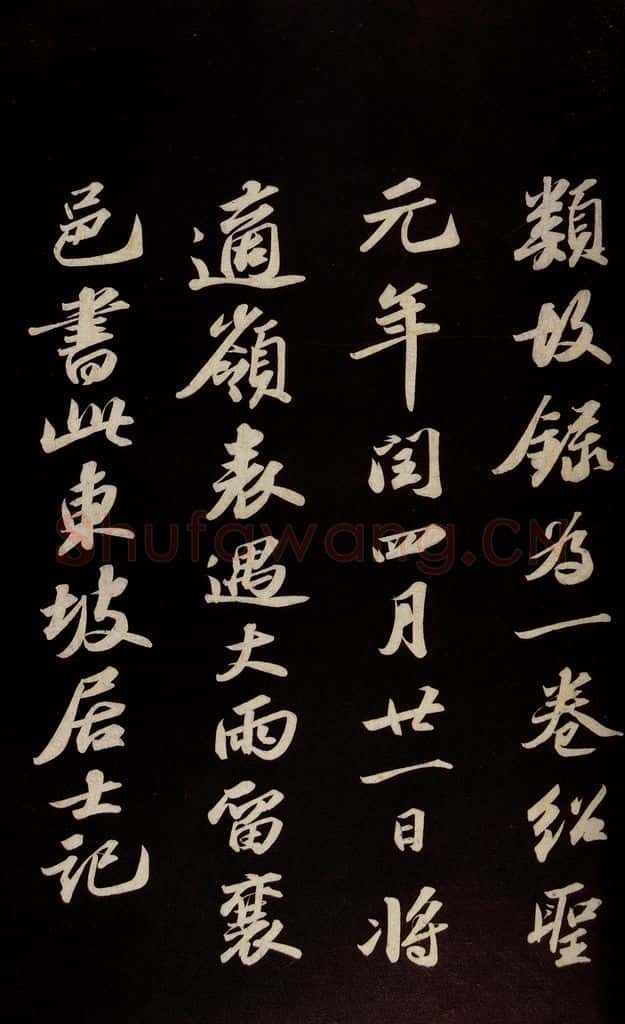 類故録為一卷紹聖
元年閏四月廿一日將
適嶺表遇大雨留襄
邑書此東坡居士記
Shufawang.CN